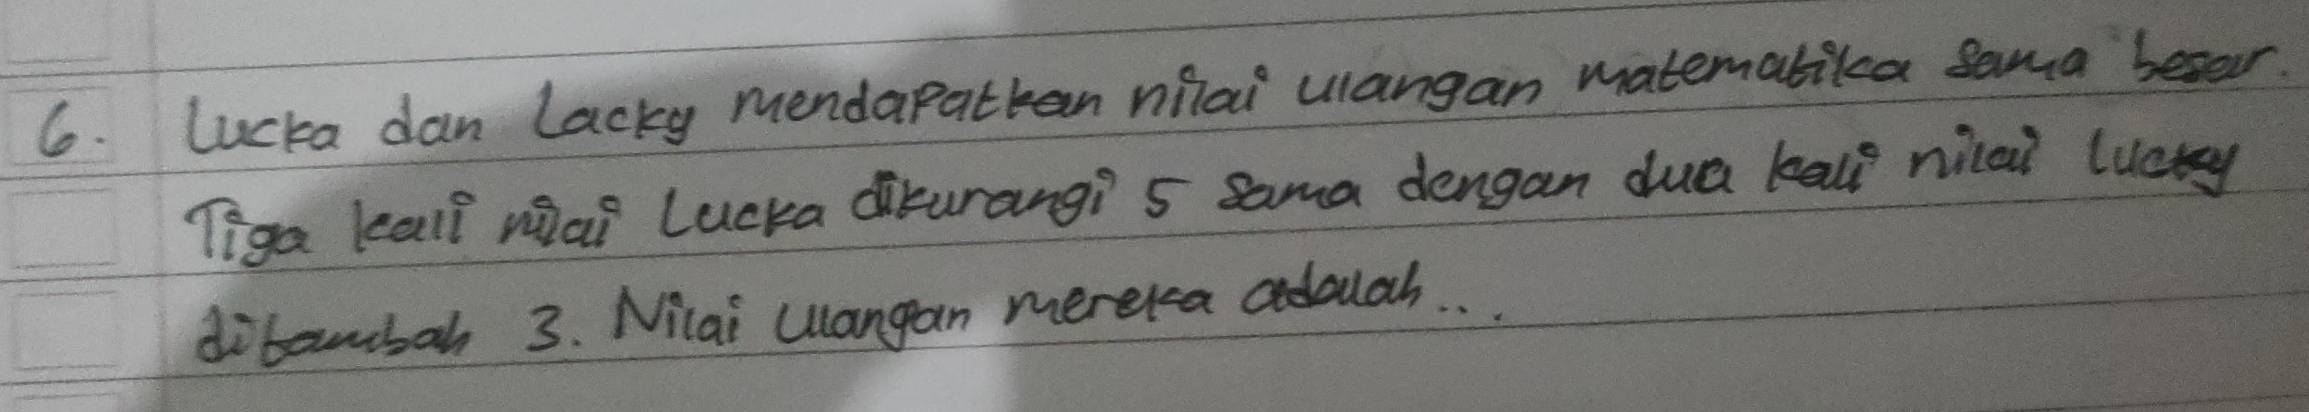 6. Lucka dan Lacky mendapatkan nilai ulangan matematika sama besar.
Tiga kali nilai Lucka dikurangi 5 sama dengan dua kali nilai Lucky
ditambah 3. Nilai ulangan mereka adalah...